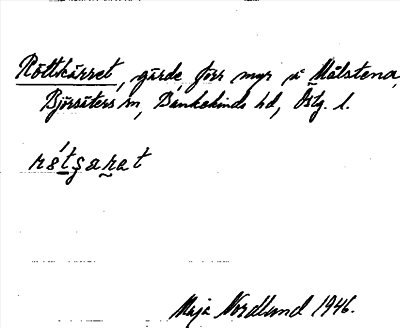 Röttkärret, gärde, förr myr å Målstena,
Björsäters sn, Bankekinds hd, Östg. l.
Maja Nordlund 1946.